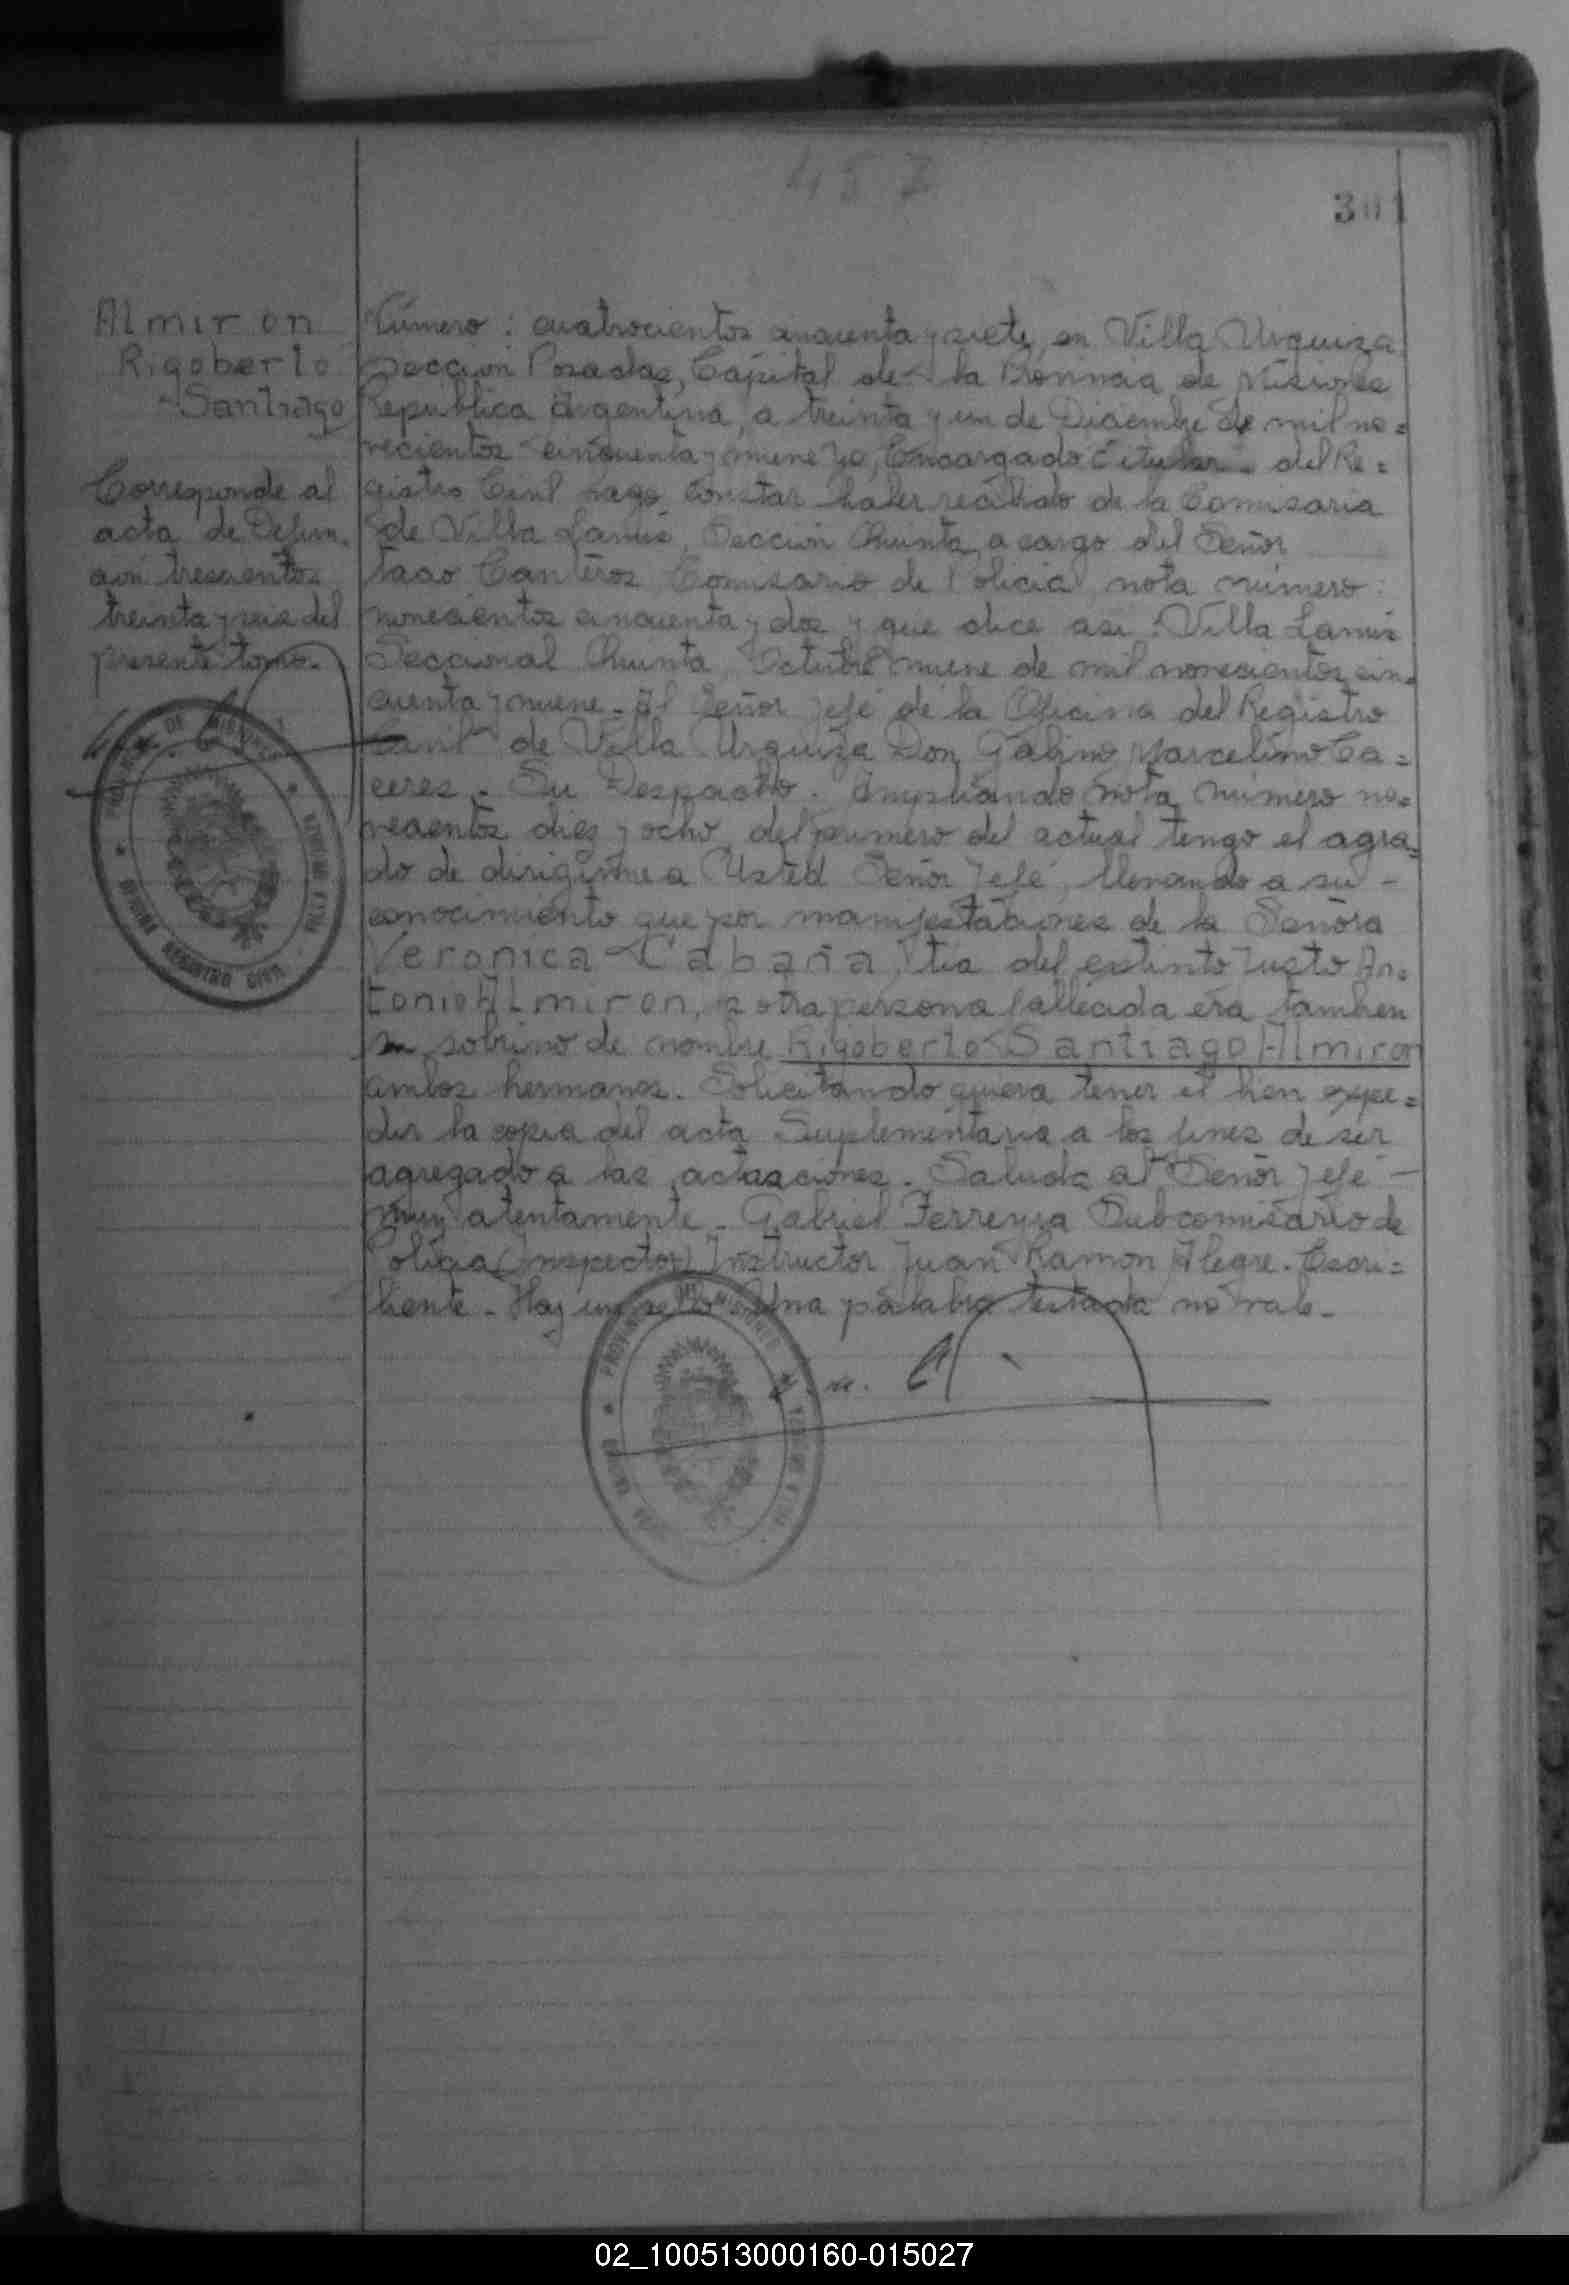 457
301
Almiron
Rigoberto
Santiago
Corresponde al
acta de Defun-
ción trescientos
treinta y seis del
presente tomo.
Número: cuatrocientos cincuenta y siete, en Villa Urquiza
Sección Posadas, Capital de la Provincia de Misiones
República Argentina, a treinta y un de Diciembre de mil no=
vecientos cincuenta y nueve Yo, Encargado Titular del Re=
gistro Civil hago constar haber recibido de la Comisaria
de Villa Lanús, Sección Quinta, a cargo del Señor
Canteros Comisario de Policia, nota número:
novecientos cincuenta y dos y que dice así: Villa Lanús
Seccional Quinta, Octubre nueve de mil novecientos cin=
cuenta y nueve. Al Señor Jefe de la Oficina del Registro
Civil de Villa Urquiza Don Gabino Marcelino Ca=
ceres. Su Despacho. Ampliando nota número no=
vecientos diez y ocho, del primero del actual tengo el agra=
do de dirigirme a Usted Señor Jefe, llevando a su -
conocimiento que por manifestaciones de la Señora
Veronica Cabaña, tia del extinto Justo An=
tonio Almiron, la otra persona fallecida era tambien
su sobrino de nombre Rigoberto Santiago Almiron
ambos hermanos. Solicitando quiera tener el bien expe=
dir la copia del acta Suplementaria a los fines de ser
agregado a las actuaciones. Saluda al Señor Jefe -
muy atentamente. Gabriel Ferreyra Subcomisario de
Policia (Inspector) Instructor Juan Ramon Alegre. Escri=
biente. Hay un sello. Una palabra testada no vale.
PROVINCIA DE MISIONES
OFICINA REGISTRO CIVIL
PROVINCIA DE MISIONES
02_100513000160-015027